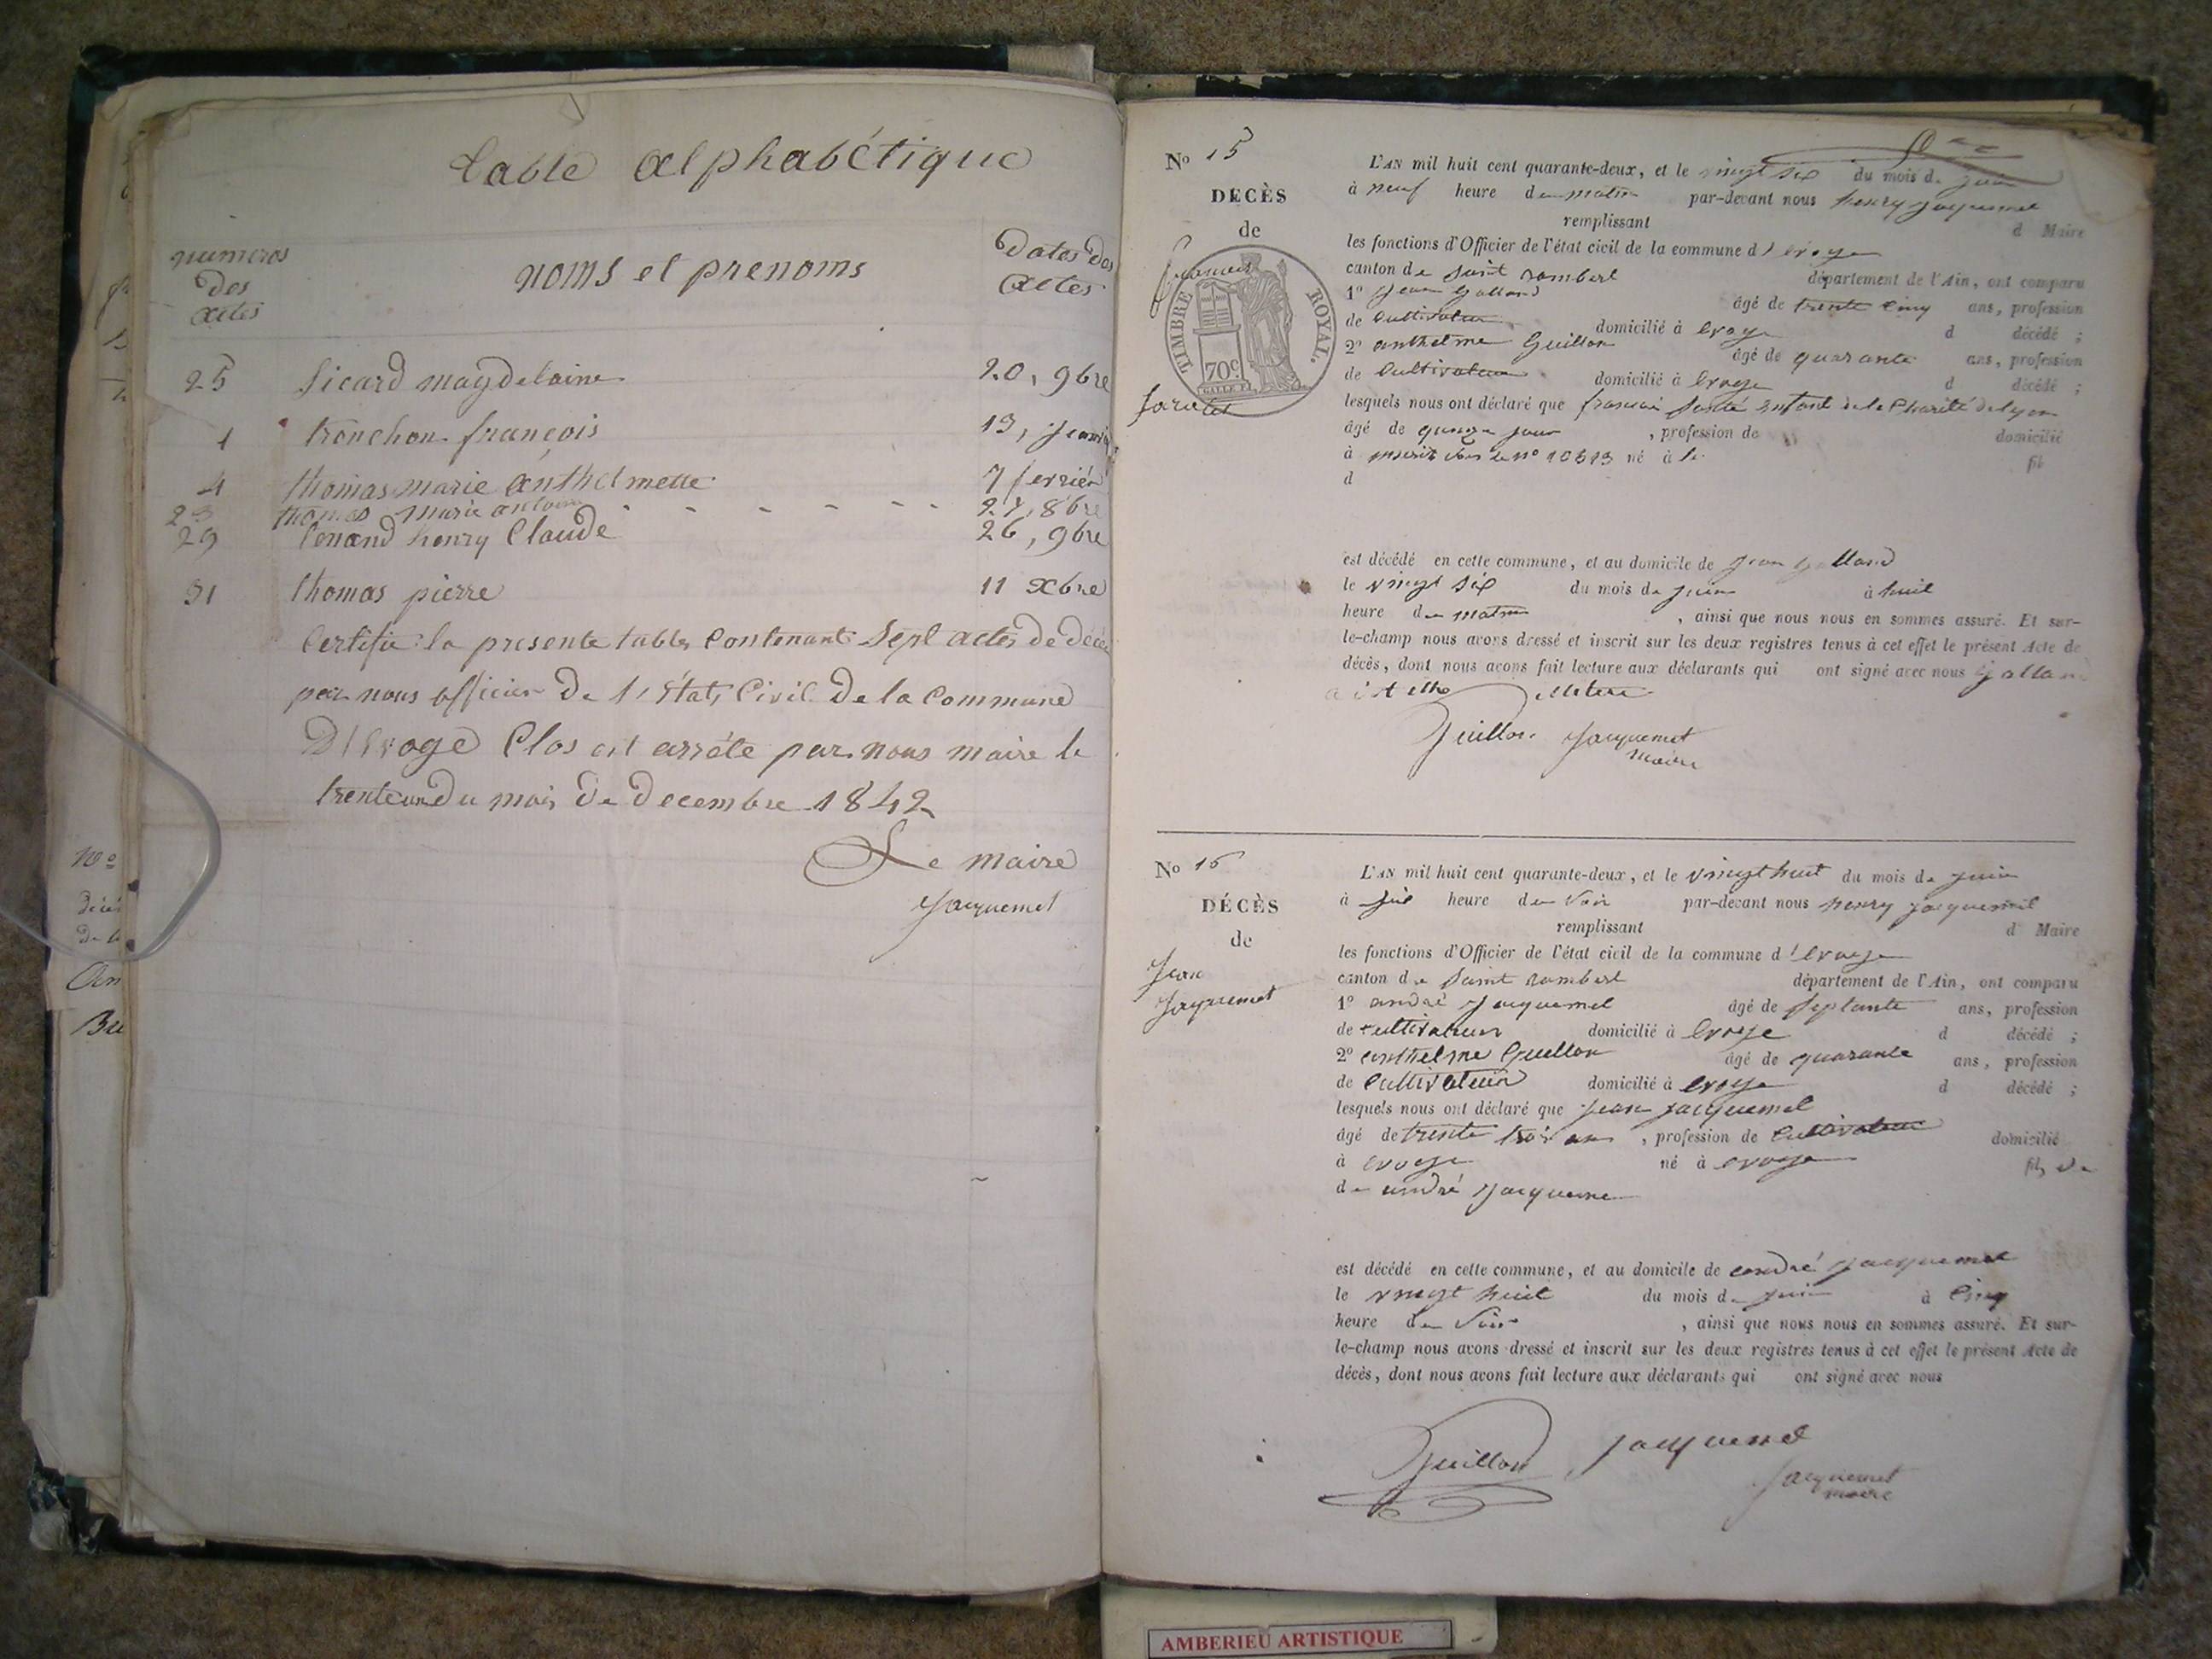 table alphabétique
numeros des actes
noms et prenoms
Dates des actes
25 Sicard magdelaine 20, 9bre
1 tronchon françois 13,
4 thomas marie anthelmette 7 fevrier
23 thomas marie antoine - - - - - - 27, 8bre
29 henry Claude 26, 9bre
31 thomas pierre 11 xbre
Certifié la presente table Contenant Sept actes de décè
par nous officier De l'État Civil De la Commune
D'Evoge Clos et arrété par nous maire le
trente un Du mois De Decembre 1842
Le maire
Jacquemet
No
Am
No 15
DECÈS
de
françois
TIMBRE ROYAL.
70c.
L'AN mil huit cent quarante-deux, et le vingt six du mois de juin
à neuf heure du matin par-devant nous henry jacquemet
remplissant d Maire
les fonctions d'Officier de l'état civil de la commune d'Evoge
canton de Saint rambert département de l'Ain, ont comparu
1° jean Galland âgé de trente cinq ans, profession
de Cultivateur domicilié à Evoge d décédé ;
2° anthelme Guillon âgé de quarante ans, profession
de Cultivateur domicilié à Evoge d décédé ;
lesquels nous ont déclaré que françois enfant de la Charité de lyon
âgé de quinze jour , profession de domicilié
à inscrit sous le n° 10513 né à le fil
d
est décédé en cette commune, et au domicile de jean Galland
le vingt six du mois de juin à huit
heure du matin , ainsi que nous nous en sommes assuré. Et sur-
le-champ nous avons dressé et inscrit sur les deux registres tenus à cet effet le présent Acte de
décès, dont nous avons fait lecture aux déclarants qui ont signé avec nous Galland
Guillon Jacquemet
maire
No 16
DÉCÈS
de
Jean
Jacquemet
L'AN mil huit cent quarante-deux, et le vingt huit du mois de juin
à six heure du Soir par-devant nous henry jacquemet
remplissant d Maire
les fonctions d'Officier de l'état civil de la commune d'Evoge
canton de Saint rambert département de l'Ain, ont comparu
1° andré Jacquemet âgé de septante ans, profession
de cultivateur domicilié à Evoge d décédé ;
2° anthelme Guillon âgé de quarante ans, profession
de Cultivateur domicilié à Evoge d décédé ;
lesquels nous ont déclaré que jean jacquemet
âgé de trente trois ans , profession de Cultivateur domicilié
à Evoge né à Evoge fils de
de andré Jacqueme
est décédé en cette commune, et au domicile de andré jacquemet
le vingt huit du mois de juin à Cinq
heure du Soir , ainsi que nous nous en sommes assuré. Et sur-
le-champ nous avons dressé et inscrit sur les deux registres tenus à cet effet le présent Acte de
décès, dont nous avons fait lecture aux déclarants qui ont signé avec nous
Guillon jacquemet
Jacquemet
maire
AMBERIEU ARTISTIQUE